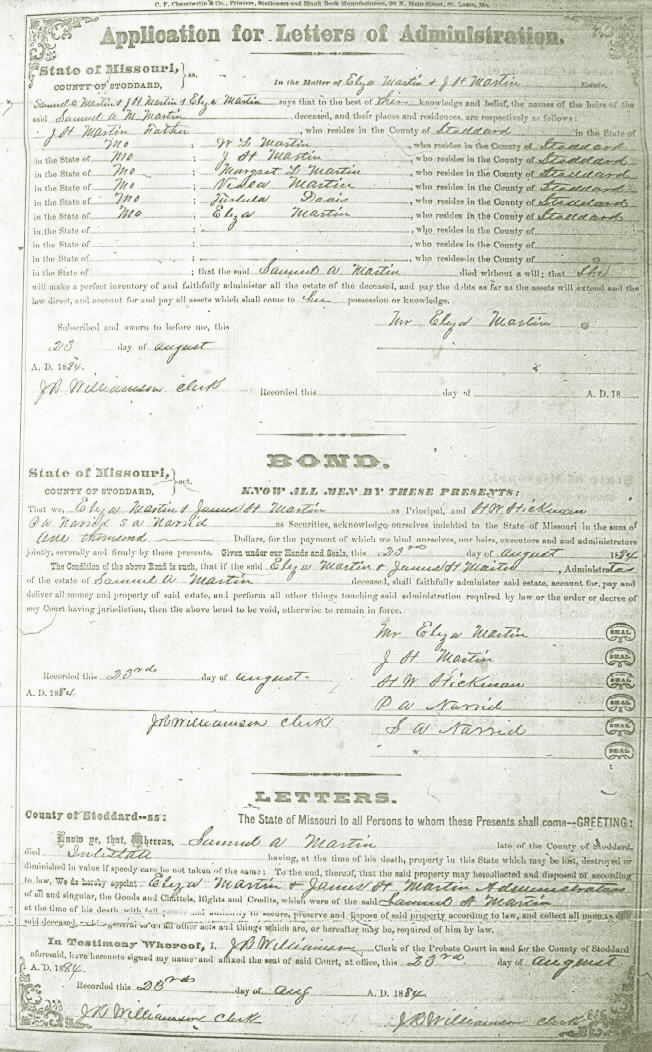 C. F. Chamberlin & Co., Printers, Stationers and Blank Book Manufacturers, N. Main Street, St. Louis, Mo.
Application for Letters of Administration.
State of Missouri, } ss.
COUNTY OF STODDARD,
In the Matter of Eliza Martin & J H Martin Estate,
Samuel a Martin & J H Martin & Eliza Martin says that to the best of their knowledge and belief, the names of the heirs of the
said Samuel a M Martin deceased, and their places and residences, are respectively as follows:
J H Martin Father , who resides in the County of Stoddard in the State of
Mo ; W L Martin , who resides in the County of Stoddard
in the State of Mo ; J H Martin , who resides in the County of Stoddard
in the State of Mo ; Margret L Martin , who resides in the County of Stoddard
in the State of Mo ; Martin , who resides in the County of Stoddard
in the State of Mo ; Davis , who resides in the County of Stoddard
in the State of Mo ; Eliza Martin , who resides in the County of Stoddard
in the State of ; , who resides in the County of
in the State of ; , who resides in the County of
in the State of ; , who resides in the County of
in the State of ; that the said Samuel a Martin died without a will; that She
will make a perfect inventory of and faithfully administer all the estate of the deceased, and pay the debts as far as the assets will extend and the
law direct, and account for and pay all assets which shall come to her possession or knowledge.
Mr Eliza Martin
Subscribed and sworn to before me, this
23 day of august
A. D. 1884.
J R Williamson Clerk
Recorded this day of A. D. 18
BOND.
State of Missouri, } sct.
COUNTY OF STODDARD,
KNOW ALL MEN BY THESE PRESENTS:
That we, Eliza Martin & James H Martin as Principal, and H W Hickman
P a Narrid S a Narrid as Securities, acknowledge ourselves indebted to the State of Missouri in the sum of
One thousand Dollars, for the payment of which we bind ourselves, our heirs, executors and and administrators
jointly, severally and firmly by these presents. Given under our Hands and Seals, this 23rd day of august 1884.
The Condition of the above Bond is such, that if the said Eliza Martin & James H Martin , Administrators
of the estate of Samuel A Martin deceased, shall faithfully administer said estate, account for, pay and
deliver all money and property of said estate, and perform all other things touching said administration required by law or the order or decree of
any Court having jurisdiction, then the above bond to be void, otherwise to remain in force.
Mr Eliza Martin SEAL
J H Martin SEAL
Recorded this 23rd day of august
H W Hickman SEAL
A. D. 1884
P a Narrid SEAL
J R Williamson Clerk
S a Narrid SEAL
SEAL
LETTERS.
County of Stoddard--ss:
The State of Missouri to all Persons to whom these Presents shall come--GREETING:
Know ye, that, Whereas, Samuel a Martin late of the County of Stoddard,
died Intestate having, at the time of his death, property in this State which may be lost, destroyed or
diminished in value if speedy care be not taken of the same: To the end, thereof, that the said property may be collected and disposed of according
to law, We do hereby appoint Eliza Martin & James H Martin Administrators
of all and singular, the Goods and Chattels, Rights and Credits, which were of the said Samuel A Martin
at the time of his death with full power and authority to secure, preserve and dispose of said property according to law, and collect all moneys due
said deceased, and general to do all other acts and things which are, or hereafter may be, required of him by law.
In Testimony Whereof, I, J R Williamson , Clerk of the Probate Court in and for the County of Stoddard
aforesaid, have hereunto signed my name and affixed the seal of said Court, at office, this 23rd day of august
A. D. 1884.
Recorded this 23rd day of aug A. D. 1884
J R Williamson Clerk
J R Williamson Clerk